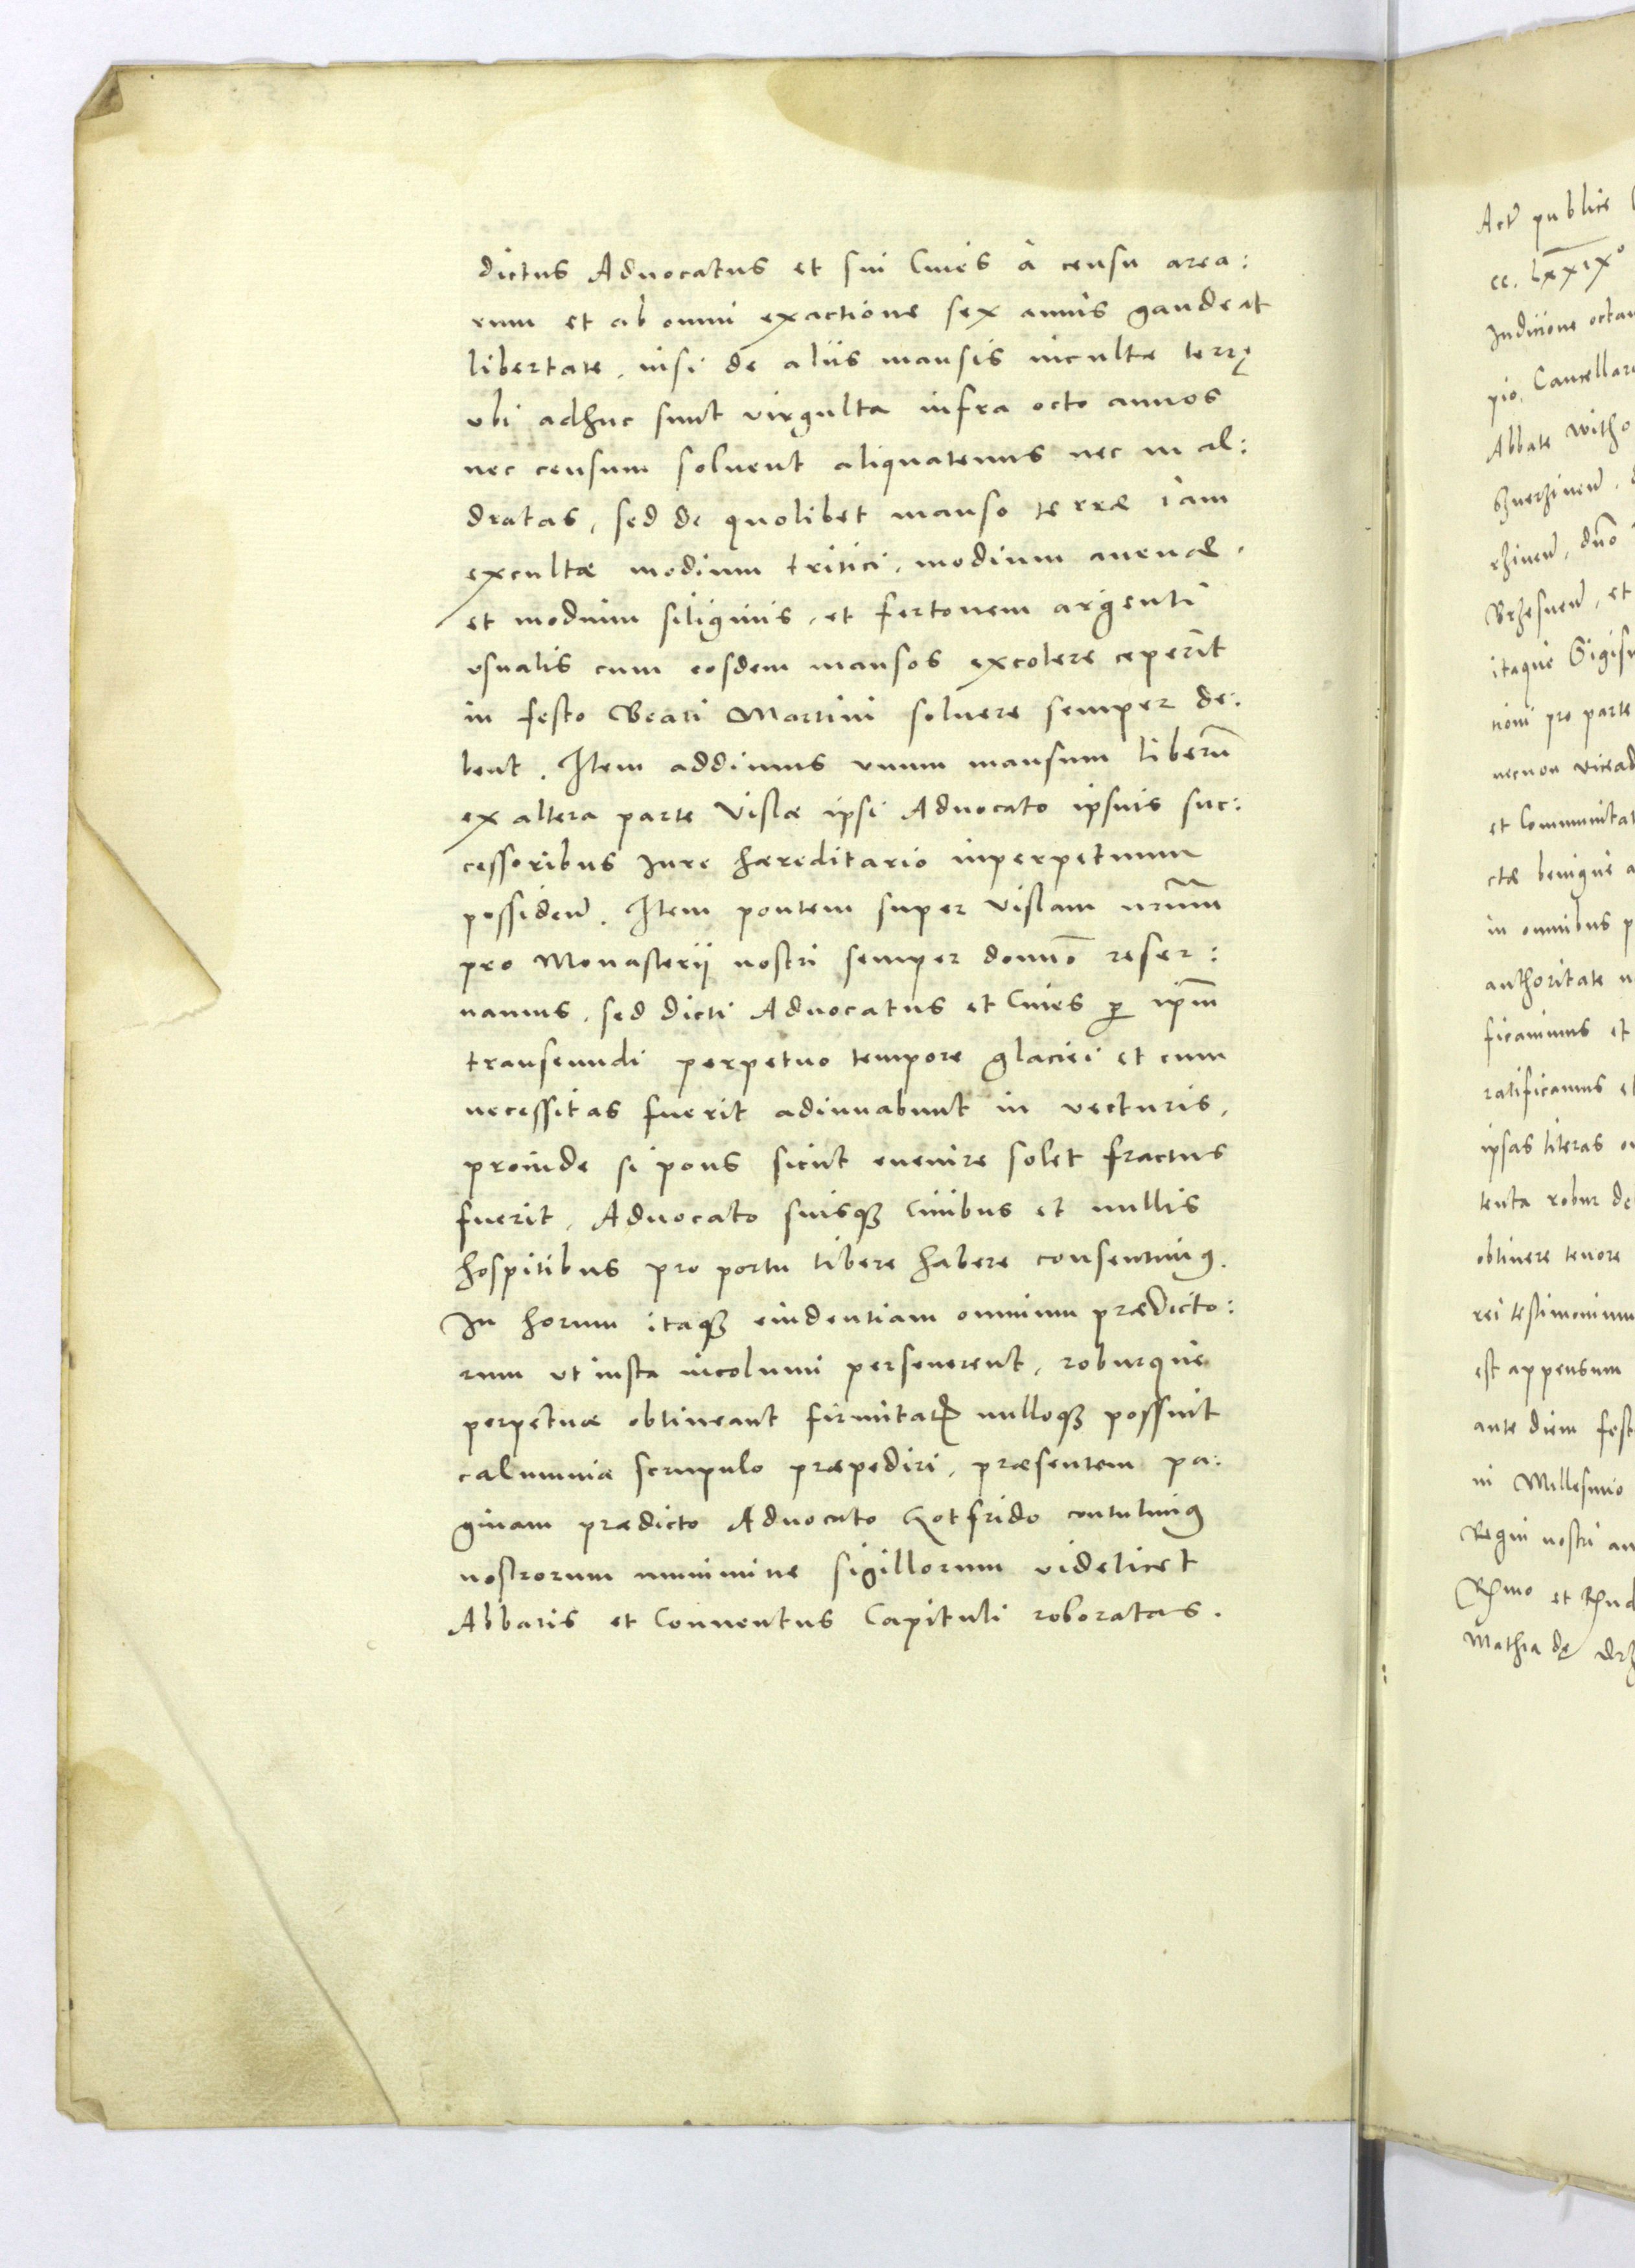 dictus Aduocatus et sui Ciues à censu area:
rum et ab omni exactione sex annis gaudeat
libertate, nisi de aliis mansis incultæ terrę
vbi adhuc sunt virgulta infra octo annos
nec censum soluent aliquatenus nec mal:
dratas, sed de quolibet manso terræ iam
excultæ modium tritici, modium auenæ,
et modium siliginis, et fertonem argenti
vsualis cum eosdem mansos excolere ceperint
in festo Beati Martini soluere semper de:
bent. Item addimus vnum mansum liberũ
ex altera parte Vislæ ipsi Aduocato ipsuis suc:
cessoribus Jure hæreditario inperpetuum
possideñ. Item pontem super Vislam nr̃um
pro Monasterij nostri semper domuõ reser:
uamus, sed dicti Aduocatus et Ciues ꝑ ip̃m
transeundi perpetuo tempore glaciei et cum
necessitas fuerit adiuuabunt in vecturis,
proinde si pons sicut euenire solet fractus
fuerit, Aduocato suisqȝ Ciuibus et nullis
hospitibus pro portu libere habere consentimꝰ.
In horum itaqȝ euidentiam omnium prædicto:
rum vt iusta incolumi perseuerent, roburque
perpetuæ obtineant firmitatꝭ nulloqȝ possint
calumniæ scrupulo præpediri, præsentem pa:
ginam prædicto Aduocato Gotfrido contulimꝰ
nostrorum munimine sigillorum videlicet
Abbatis et Conuentus Capituli roboratas.
Act̃ publice
cc. lxxixº
Indicione octau
pio, Cancellar
Abbate Witho
rzineñ, dno
Brzesneñ, et
itaque Sigis
tioni pro parte
necnon vicead
et Communitat
ctæ benigne a
in omnibus p
authoritate n
ficauimus et
ratificamus et
ipsas literas
tenta robur de
obtinere tenore
rei testimonium
est appensum
ante diem fest
ni Millesimo
Regni nostri an
Mathia dę